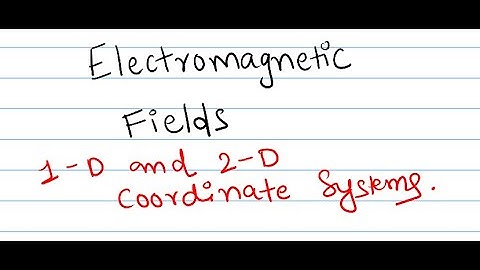 Electromagnetic
Fields
1-D and 2-D
Coordinate Systems.